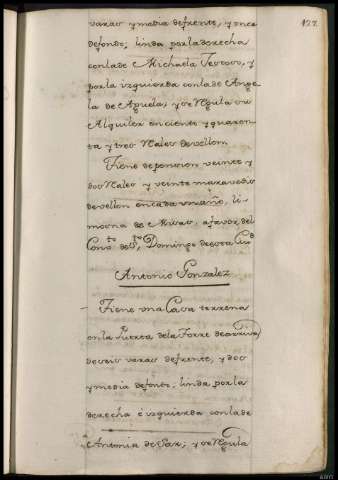 122
varas y media defrente, y once
defondo, linda por la derecha
con la de Michaela Teodoro, y
por la izquierda con la de Ange
la de Apuela; y se Regula su
Alquiler en ciento y quaren
ta y tres Reales devellon.
Tiene de pension veinte y
dos Reales y veinte maravedis
devellon encada un año, li
mosna de Misas, afavor del
Conv.to de S.to Domingo de esta Ciu.d
Antonio Gonzalez
Tiene una Casa terrena
en la Puerta de la Torre de arriva,
de seis varas defrente, y dos
y media defondo, linda por la
derecha é izquierda con la de
Antonia de Paz; y se Regula